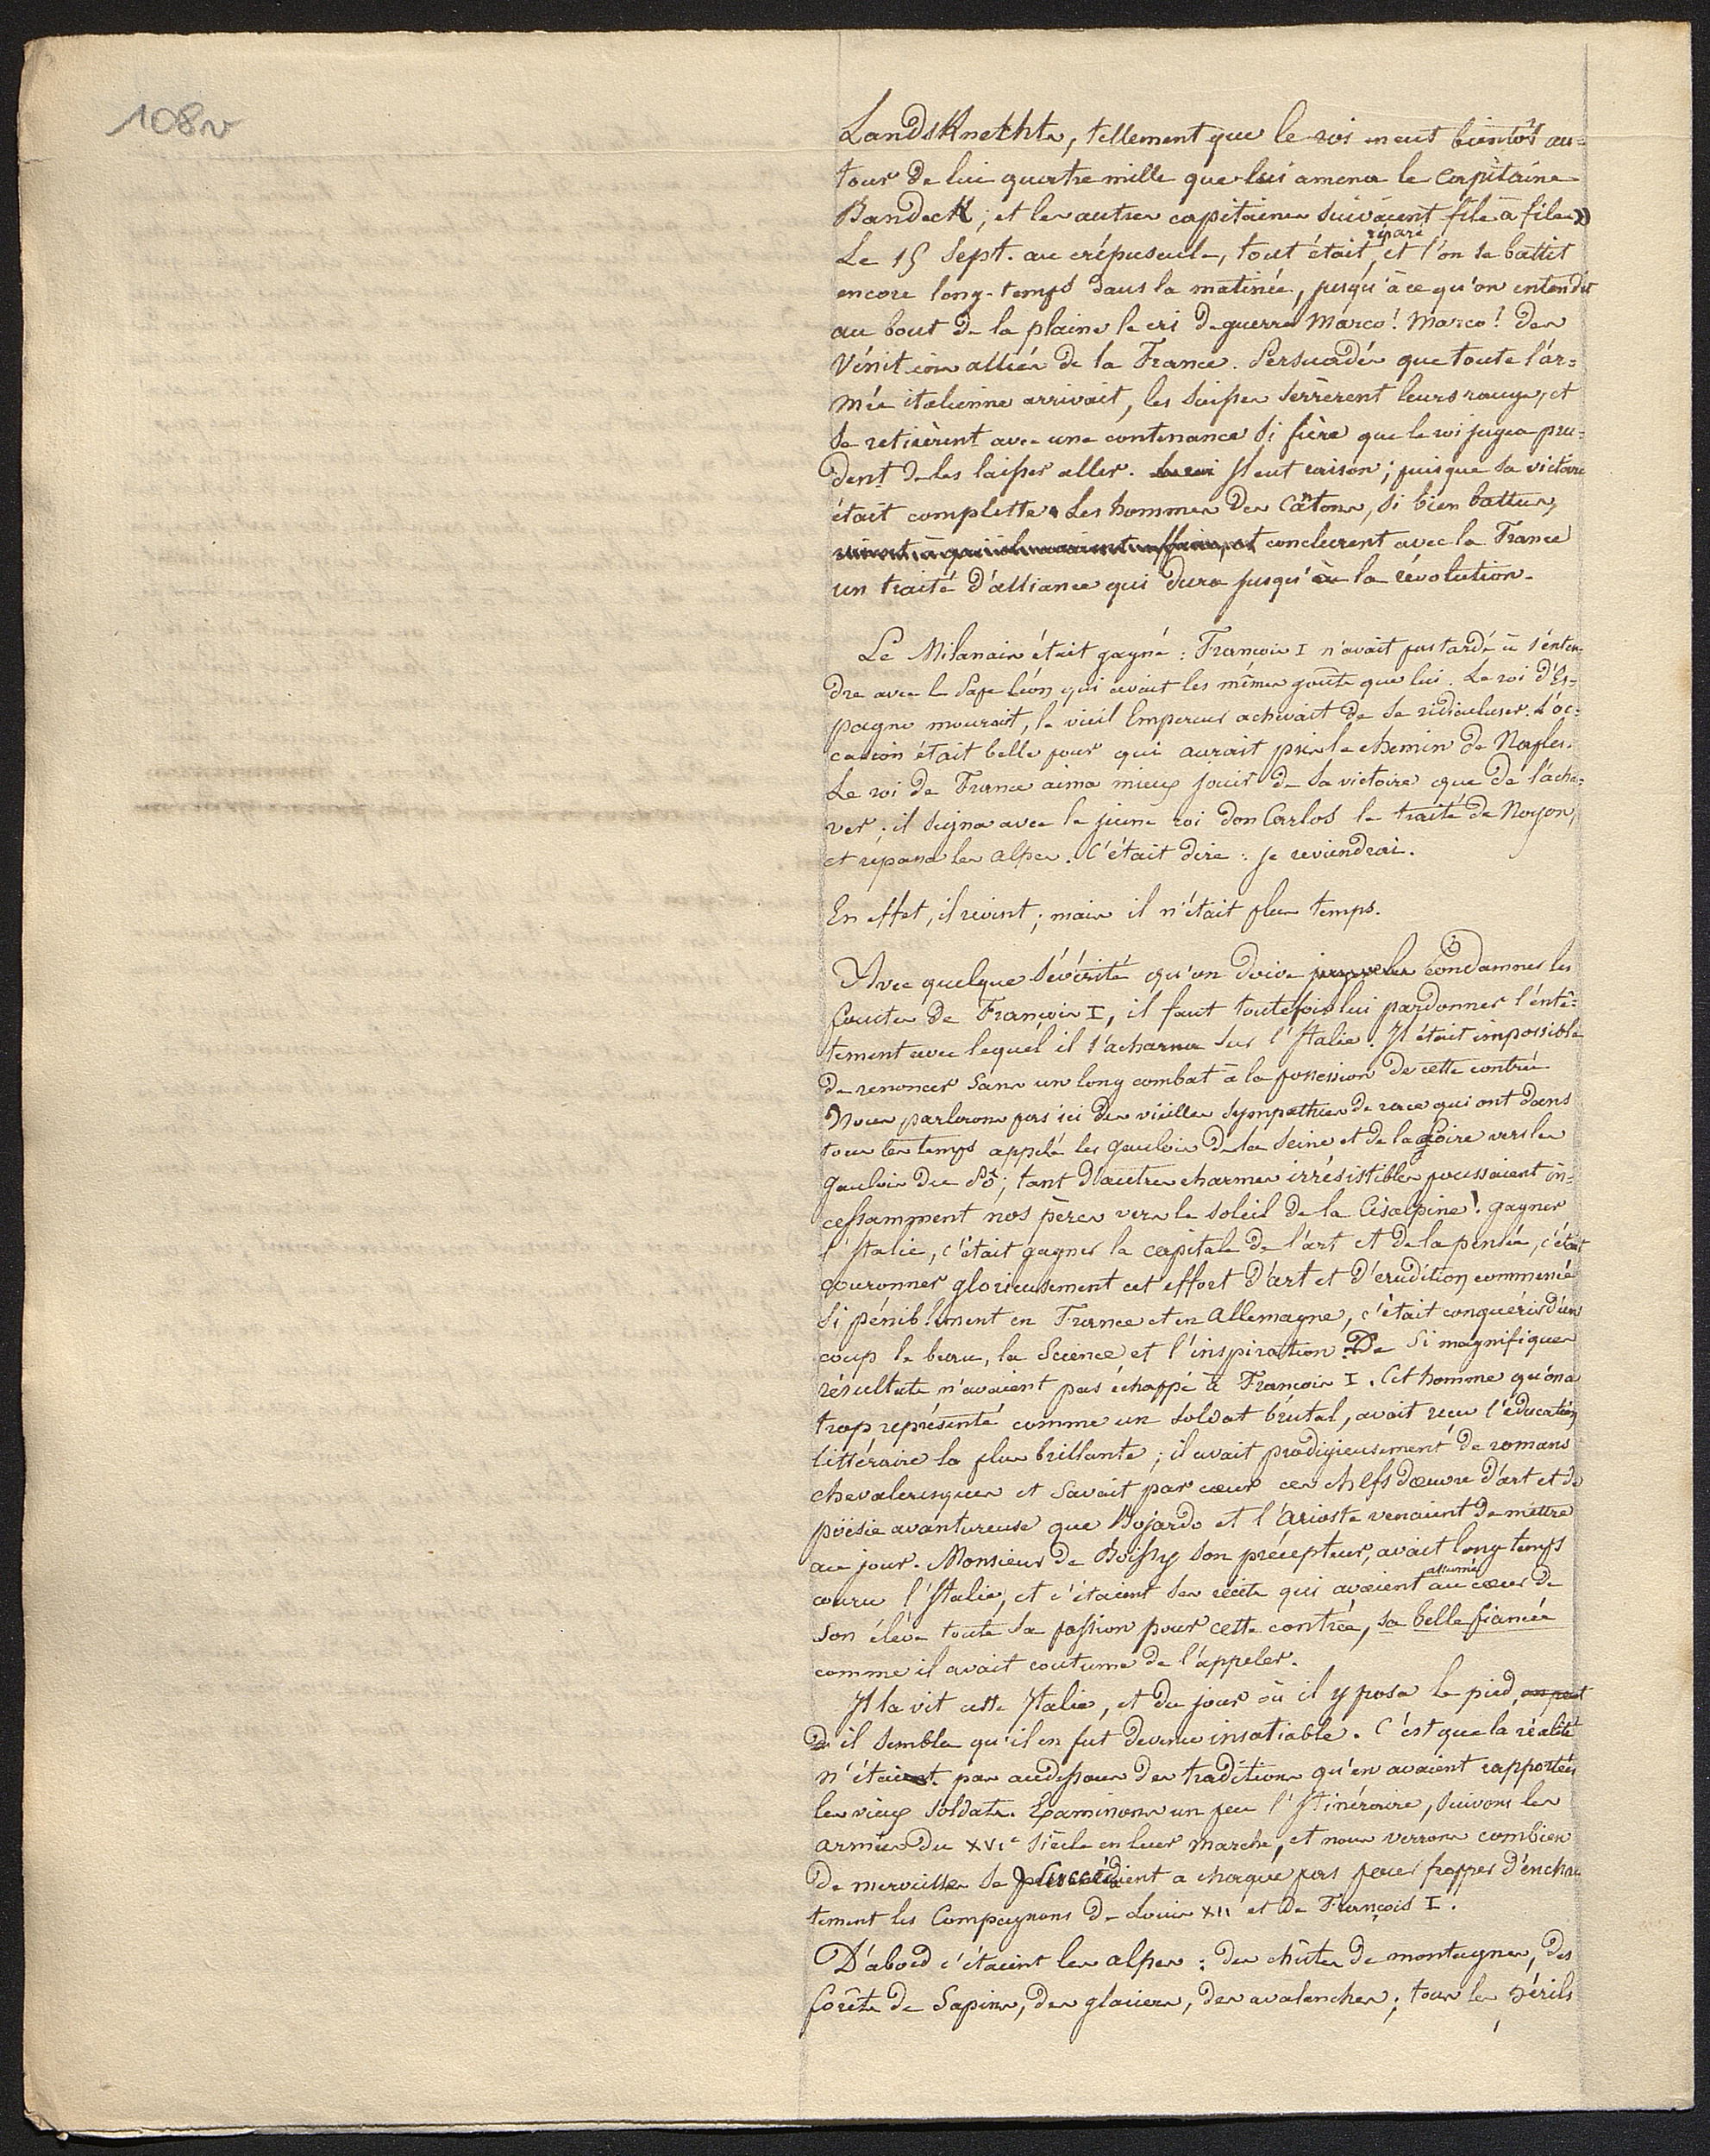 108v
LandsKnechts, tellement que le roi en eut bientôt au=
tour de lui quatre mille que lui amena le capitaine
BandecK; et les autres capitaines suivaient file à file»
réparé
Le 15 sept. au crépuscule, tout était et l'on se battit
encore long-temps dans la matinée, jusqu'à ce qu'on entendit
au bout de la plaine le cri de guerre Marco! Marco! des
Vénitiens alliés de la France. Persuadés que toute l'ar=
mée italienne arrivait, les Suisses serrèrent leurs rangs, et
se retirèrent avec une contenance si fière que le roi jugea pru=
dent de les laisser aller. Le roi Il eut raison; puisque sa victoire
était complette. Les hommes des Cantons, si bien battus,
conclurent avec la France
un traité d'alliance qui dura jusqu'à la révolution.
Le Milanais était gagné: François I n'avait pas tardé à s'enten
dre avec le Pape Léon qui avait les mêmes goûts que lui. Le roi d'Es=
pagne mourait, le vieil Empereur achevait de se ridiculiser. L'oc=
casion était belle pour qui aurait pris le chemin de Naples.
Le roi de France aima mieux jouir de sa victoire que de l'ache=
ver; il signa avec le jeune roi don Carlos le traité de Noyon,
et repassa les alpes. C'était dire: je reviendrai.
En effet, il revint; mais il n'était plus temps.
Avec quelque sévérité qu'on doive condamner les
fautes de François I, il faut toutefois lui pardonner l'entê=
tement avec lequel il s'acharna sur l'Italie. Il était impossible
de renoncer sans un long combat à la possession de cette contrée
Nous parlerons pas ici des vieilles sympathies de race qui ont dans
tous les temps appelé les gaulois de la Seine et de la Loire vers les
gaulois du Pô; tant d'autres charmes irrésistibles poussaient in=
cessamment nos pères vers le soleil de la Cisalpine! gagner
l'Italie, c'était gagner la capitale de l'art et de la pensée, c'était
couronner glorieusement cet effort d'art et d'erudition commencé
si péniblement en France et en allemagne, c'était conquérir d'un
coup le beau, la Science et l'inspiration. De si magnifiques
résultats n'avaient pas échappé à François I. Cet homme qu'on a
trop représenté comme un soldat brutal, avait reçu l'éducation
littéraire la plus brillante; il avait prodigieusement de romans
chevaleresques et savait par cœur ces chefs d'œuvre d'art et de
poësie avantureuse que Bojardo et l'arioste venaient de mettre
au jour. Monsieur de Boissy son précepteur, avait long-temps
allumé
couru l'Italie, et c'étaient ses récits qui avaient au cœur de
son élève toute sa passion pour cette contrée, sa belle fiancée
comme il avait coutume de l'appeler.
Il la vit cette Italie, et du jour où il y posa le pied, on peut
di il sembla qu'il en fut devenu insatiable. C'est que la réalité
n'était pas audessous des traditions qu'en avaient rapportées
les vieux soldats. Examinons un peu l'Itinéraire, suivons les
armées du XVIe siècle en leur marche, et nous verrons combien
de merveilles se succédaient a chaque pas pour frapper d'enchan
tement les Compagnons de Louis XII et de François I.
D'abord c'étaient les alpes: des chûtes de montagnes, des
forêts de Sapins, des glaciers, des avalanches; tous les périls